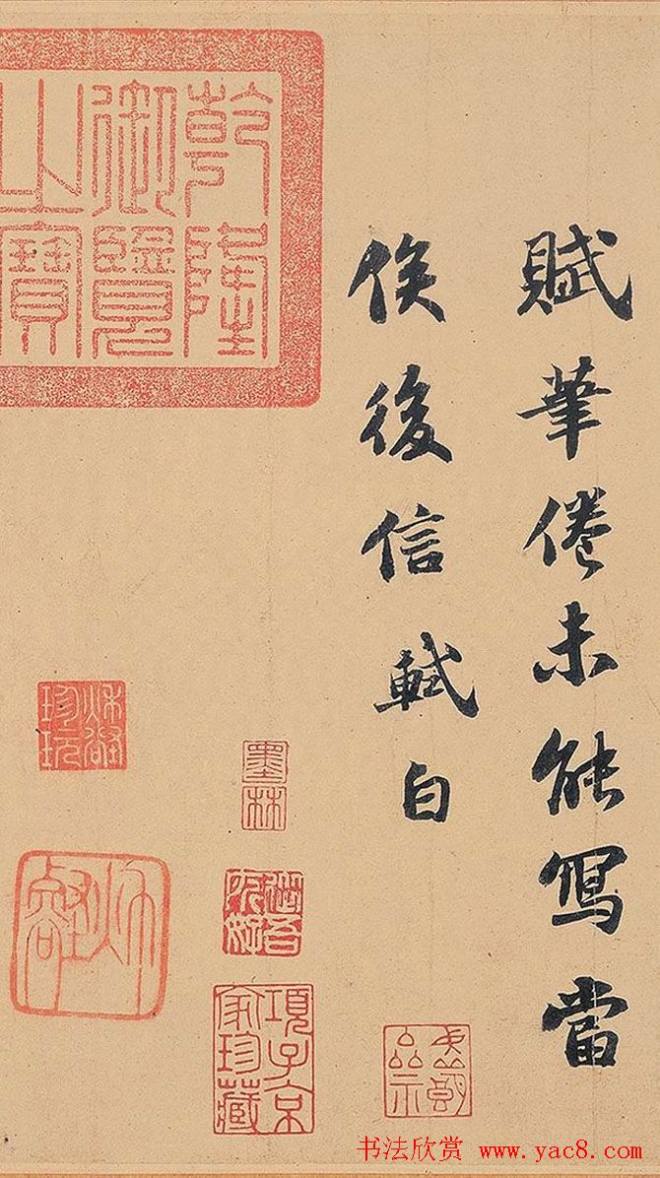 賦筆倦未能寫當
俟後信軾白
乾隆
御覽
之寶
墨林
項子京
家珍藏
书法欣赏 www.yac8.com